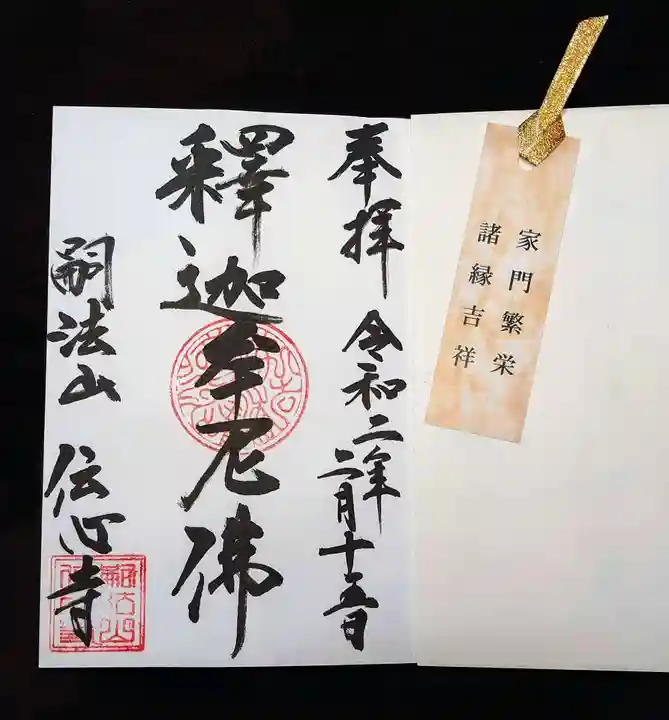 家門繁栄
諸縁吉祥
奉拝 令和二年二月十五日
釋迦牟尼佛
嗣法山 伝心寺